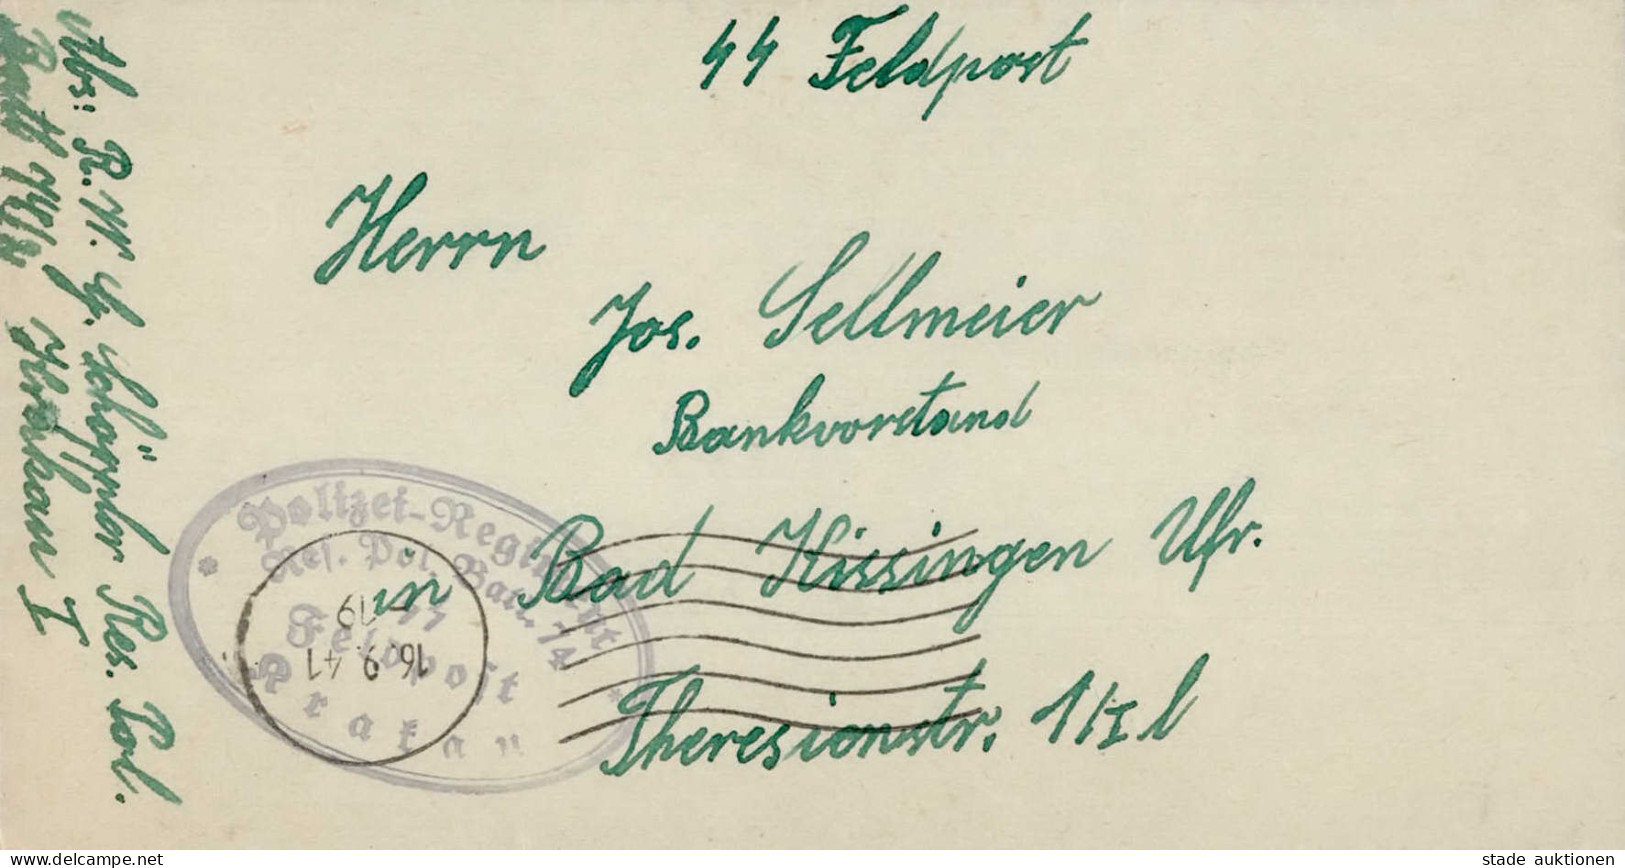 SS Feldpost
Herrn
Jos. Sellmeier
Bankvorstand
in Bad Kissingen Ufr.
Theresienstr. 1/I l
Abs: R. W. G. Schäffler Res. Pol.
Batl 74/3 Krakau I
* Polizei-Regiment *
Res. Pol. Batl. 74
Feldpost
Krakau
16.9.41
19
delcampe.net
stade auktionen